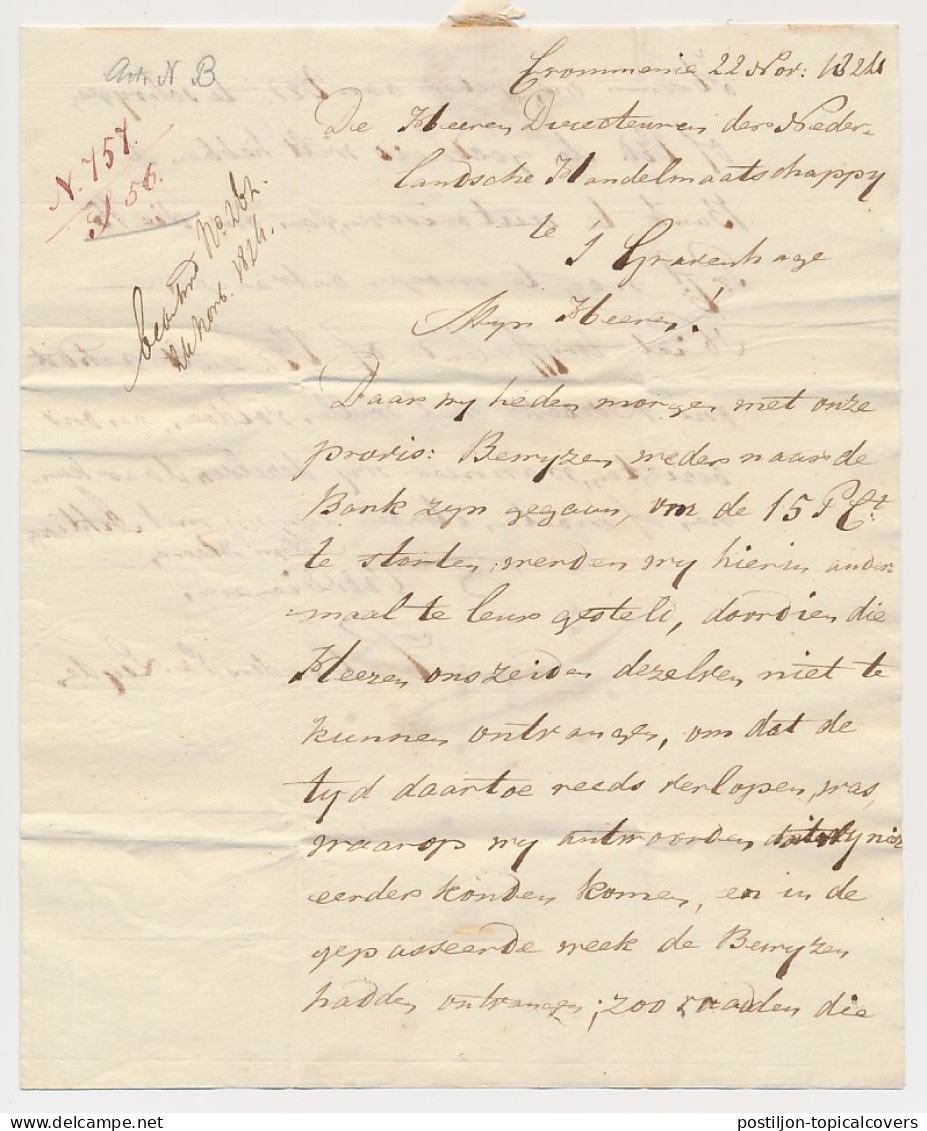 Art. N. B.
N. 757.
J 56.
beantwd No. 262.
24 Novb. 1824.
Crommenie 22 Nov: 1824
De Heeren Directeuren der Neder-
landsche Handelmaatschappy
te 's Gravenhage
Myn Heeren!
Daar wy heden morgen met onze
provis: Bewyzen weder naar de
Bank zyn gegaan, om de 15 P Ct.
te storten, werden wy hierin ander-
maal te leur gesteld, doordien die
Heeren ons zeiden dezelven niet te
kunnen ontvangen, om dat de
tyd daartoe reeds verlopen was,
waarop wy antwoorden dat wy niet
eerder konden komen, en in de
gepasseerde week de Bewyzen
hadden ontvangen; zoo raaden die
postiljon-topicalcovers